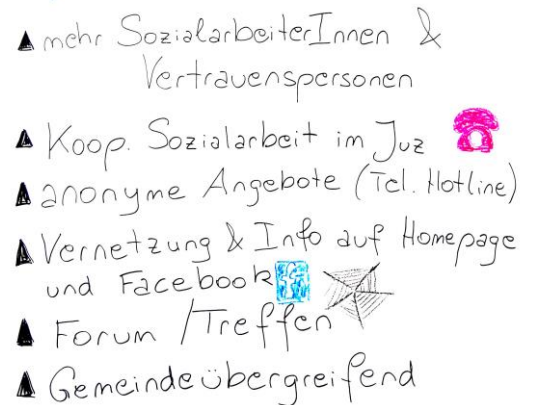 mehr SozialarbeiterInnen &
Vertrauenspersonen
Koop. Sozialarbeit im Juz
anonyme Angebote (Tel. Hotline)
Vernetzung & Info auf Homepage
und Facebook f
Forum / Treffen
Gemeindeübergreifend